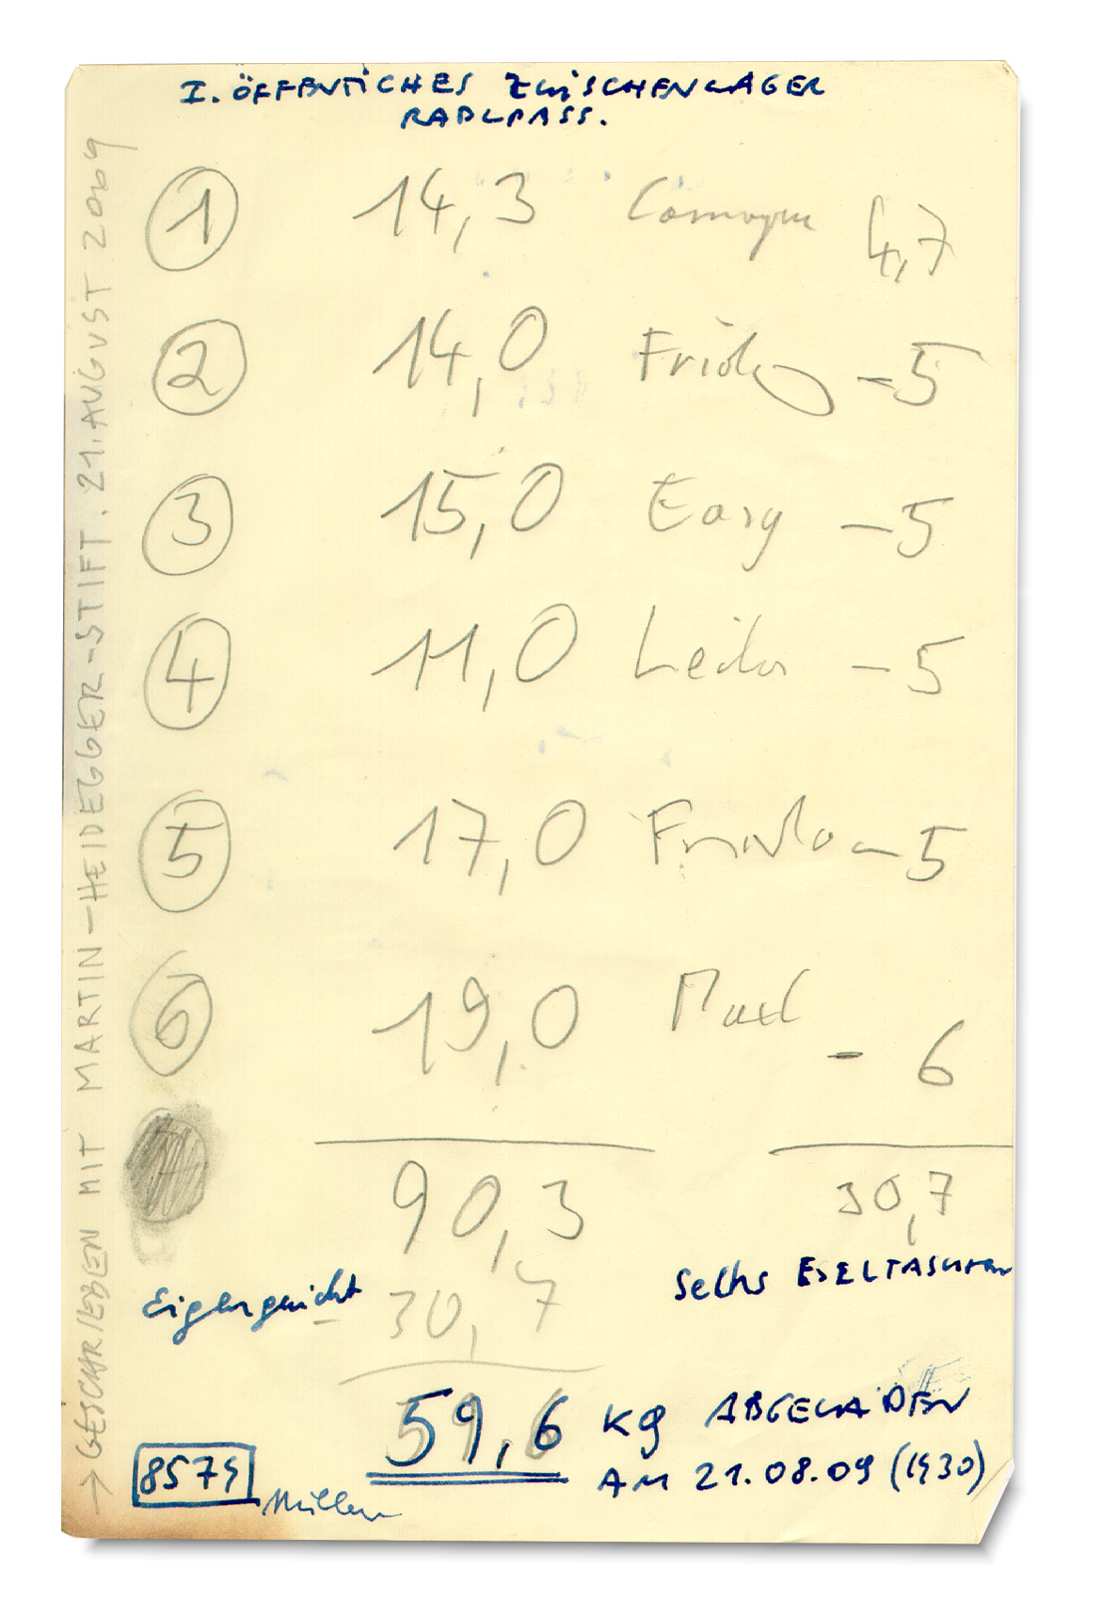 I. ÖFFENTICHES ZWISCHENLAGER
RADLPASS.
1 14,3 4,7
2 14,0 -5
3 15,0 Easy -5
4 11,0 -5
5 17,0 -5
6 19,0 -6
90,3 30,7
Sechs ESELTASCHEN
Eigengewicht - 30,7
59,6 Kg ABGELADEN
AM 21.08.09 (1930)
8579 Müller
→ GESCHRIEBEN MIT MARTIN-HEIDEGGER-STIFT. 21. AUGUST 2009